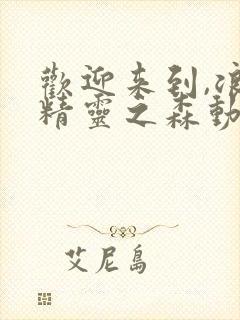 歡迎来到,
精靈之森動
艾尼島